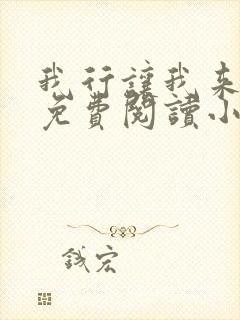 我行讓我来
免費閱讀小
钱宏